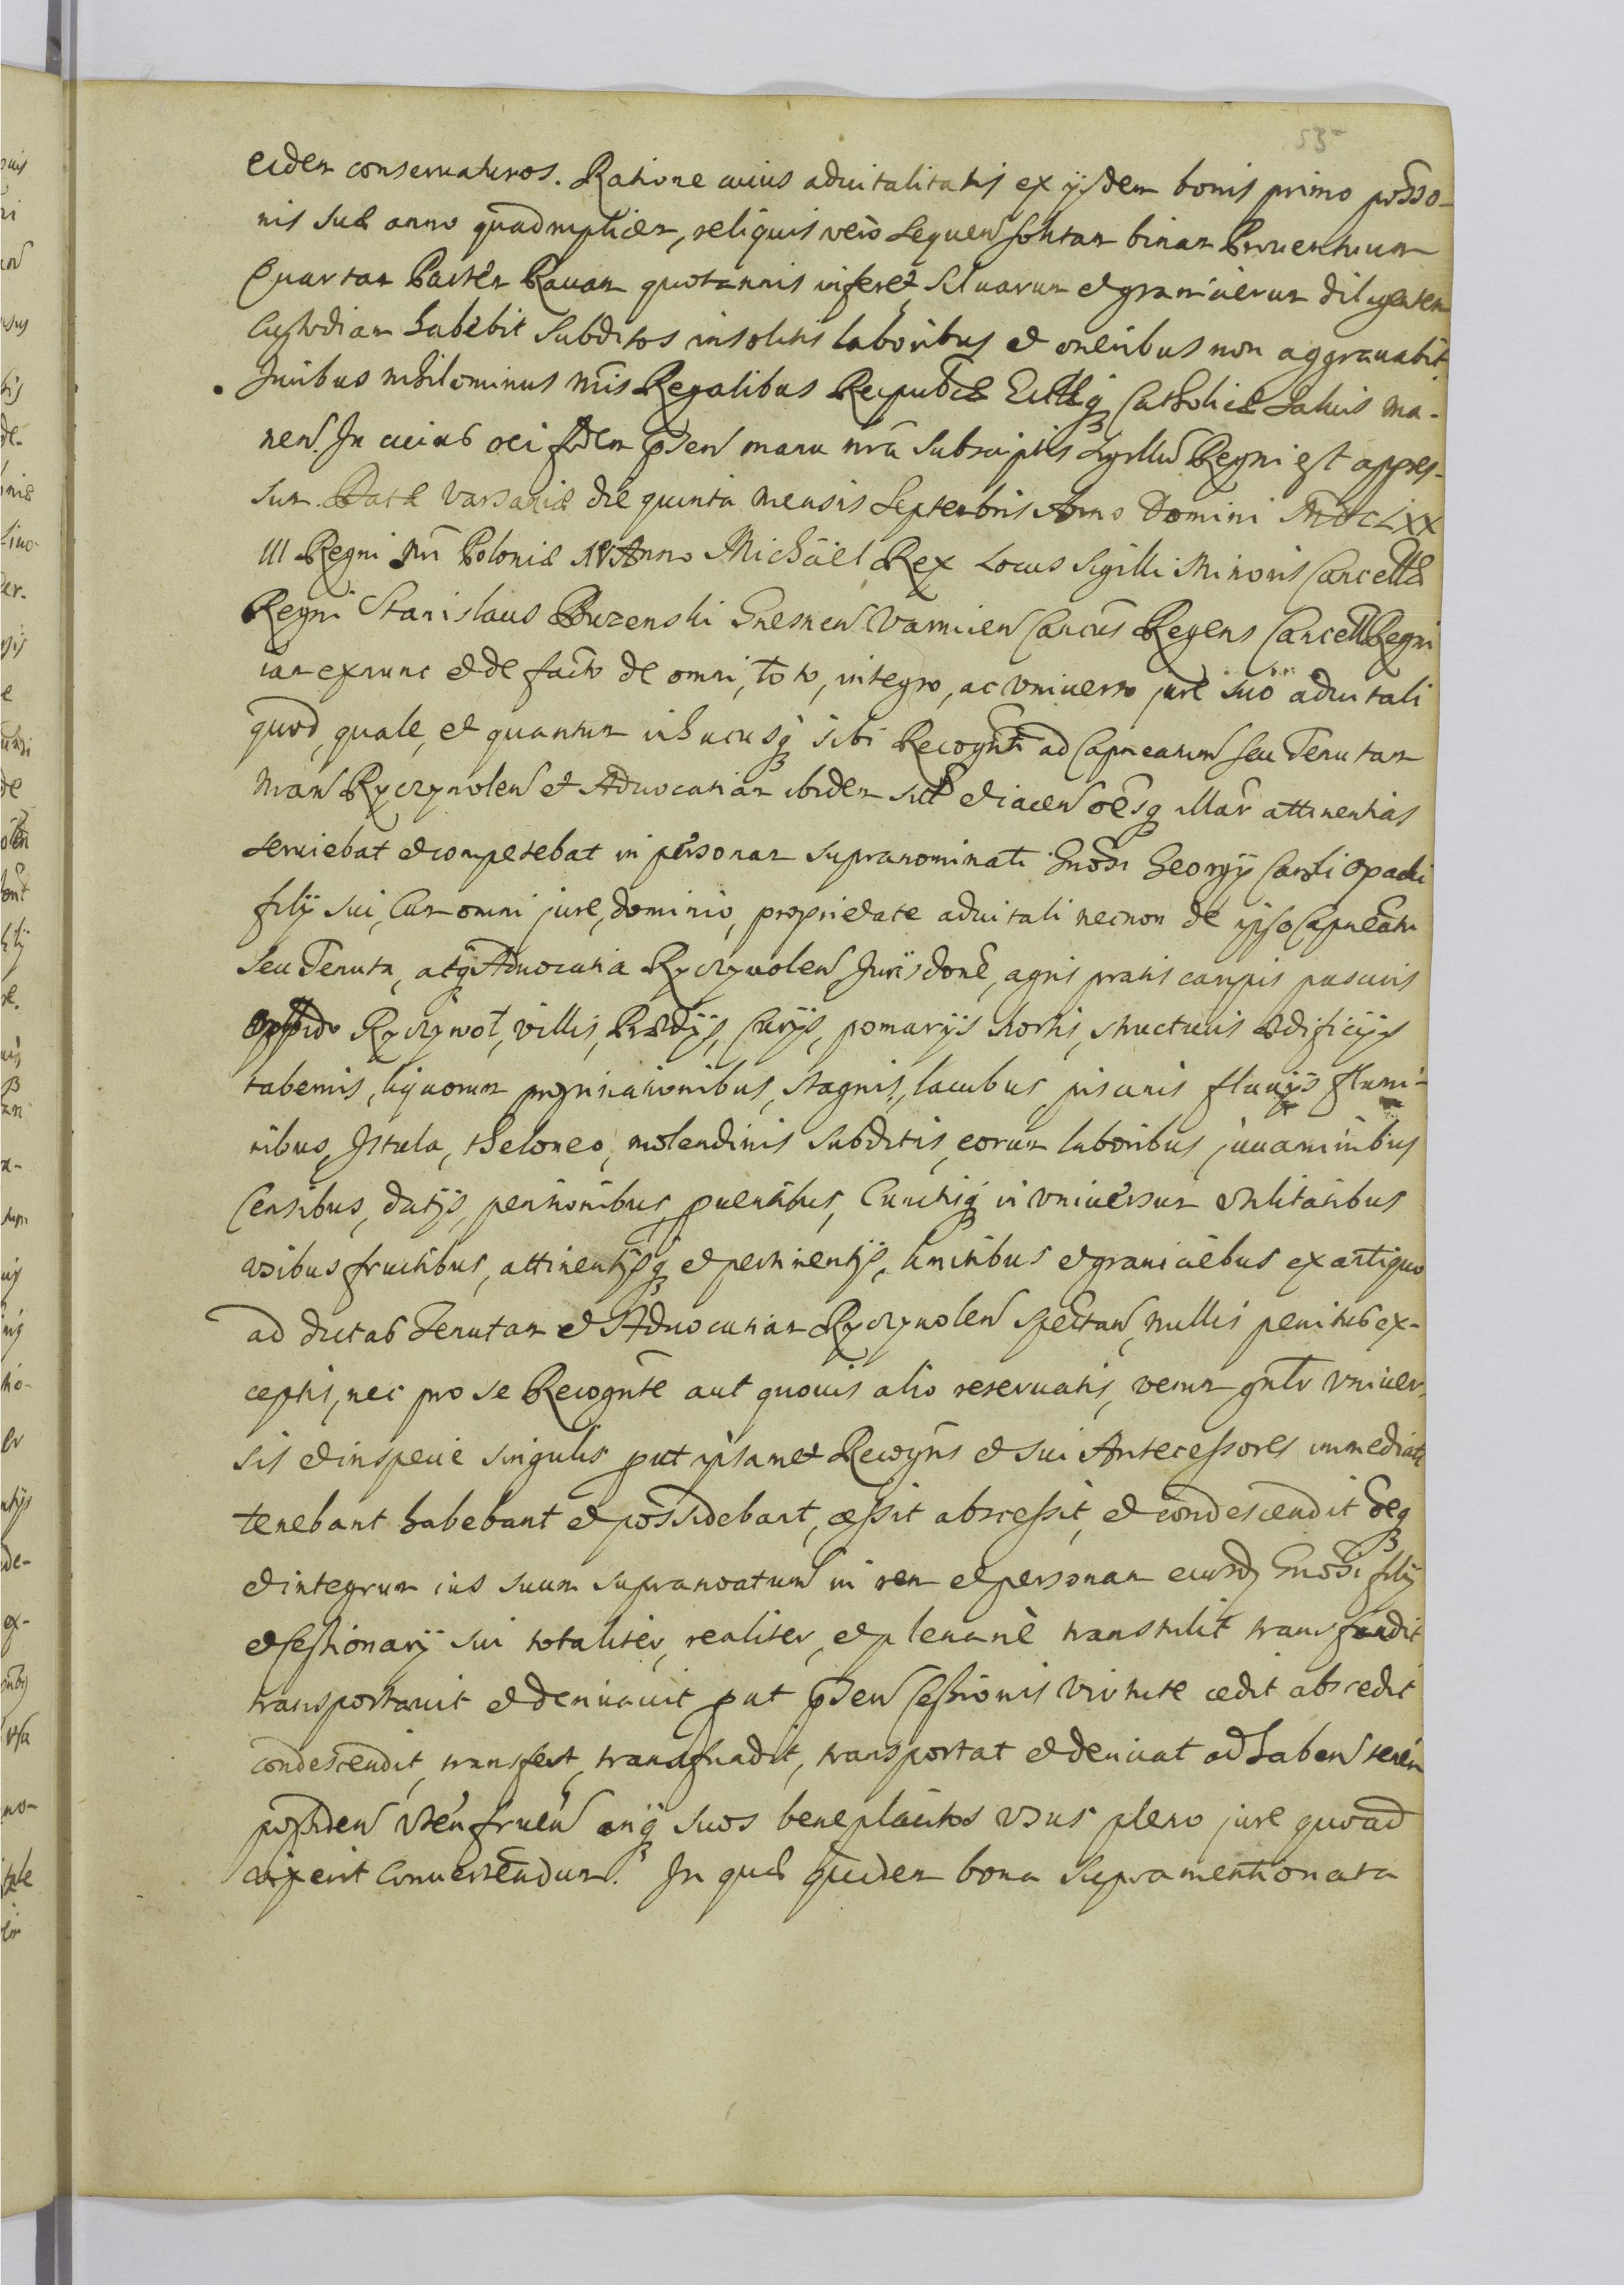 53
eidem conseruaturos. Ratione cuius aduitalitatis ex ijsdem bonis primo posso-
nis suæ anno quadruplicem, reliquis vero sequen solitam binam Prouentuum
Quartam Partem Rauam quotannis inferet, Siluarum et granicierum diligentem
Custodiam habebit Subditos insolitis laboribus et oneribus non aggrauabit
Juribus nihilominus nris Regalibus Reipublcæ Ecclæq Catholicæ Saluis ma-
nen. In cuius rei fidem pnsen manu nra Subscriptis Sigillu Regni est appres-
sum. Datæ Varsaviæ die quinta mensis Septembris Anno Domini MDCLXX
III Regni Nri Poloniæ IV Anno Michaël Rex Locus Sigilli Minoris Cancellæ
Regni Stanislaus Buzenski Gnesnen Varmien Cancus Regens Cancell Regni
iam exnunc et de facto de omni, toto, integro, ac vniuerso jure suo aduitali
quod, quale, et quantum inhucusq sibi Recognti ad Capitaneatum seu Tenutam
nram Ryczywolen et Aduocatiam ibidem sitt et iacen oesq illar attinentias
seruiebat et competebat in personam supranominati Gnosi Georgij Caroli Opacki
filij sui, Cum omni jure, dominio, proprietate aduitali necnon de ipso Capneatu
Seu Tenuta, atq Aduocatia Ryczywolen Jurisdone, agris pratis campis pascuis
Oppido Ryczywol, villis, Prædijs, Curijs, pomarijs hortis, structuris ædificijs
tabernis, liquorum propinationibus, stagnis, lacubus, piscinis fluuijs flumi-
nibus, Istula, theloneo, molendinis Subditis, eorum laboribus juuaminibus
Censibus, datijs, pensionibus, puentibus, Cunctisq in vniuersum vtilitatibus
vsibusfructibus, attinentijsq et pertinentijs, limitibus et granicebus ex antiquo
ad dictas Tenutam et Aduocatiam Ryczywolen spectan, nullis penitus ex-
ceptis, nec pro se Recognte aut quouis alio reseruatis, verum gnlr vniuer-
sis et in specie singulis put ipsamet Recogns et sui Antecessores immediate
tenebant habebant et possidebant, cessit abscessit, et condescendit deq
et integrum ius suum supranoatum in rem et personam eiusd Gnosi filij
et Cessionarij sui totaliter, realiter, et plenariè transtulit transfundit
transportauit et deriuauit put pnsen Cessionis virtute cedit abscedit
condescendit, transfert, transfundit, transportat et deriuat ad haben tenen
possiden vten fruen inq suos beneplacitos vsus pleno jure quoad
vixerit Conuertendum. In quæ quidem bona supramentionata